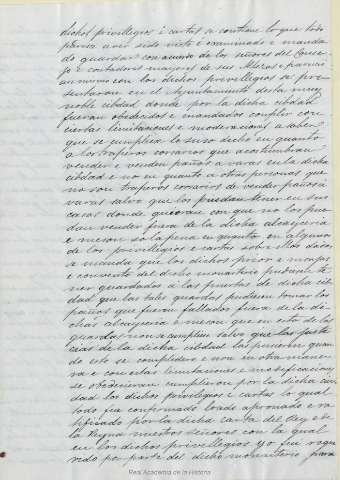 dichos privillegios i cartas se contiene lo que todo
parece aver sido visto e examinado e manda
do guardar con acuerdo de los señores del Conse
jo e contadores mayores de sus Altezas e parecio
ansi mismo con los dichos previllegios se pre
sentaron en el Ayuntamiento desta muy
noble cibdad donde por la dicha cibdad
fueron obedecidos e mandados complir con
ciertas limitaciones e moderaciones a saber
que se cumpliese lo suso dicho en quanto
a los traperos cosarios que acostumbran
vender e venden paños a varas en la dicha
cibdad e no en quanto a otras personas que
no son traperos cosarios de vender paños a
varas salvo que los puedan tener en sus
casas donde quieran con que no los pue
dan vender fuera de la dicha alcayceria
e meson so la pena en quanto en algunos
de los previllegios e cartas sobre ellos dados
se manda que los dichos prior e monjes
e convento del dicho monasterio puedan te
ner guardados á las puertas de dicha cib
dad que las tales guardas pudiesen tomar los
paños que fueran fallados fuera de la di
cha alcayceria e meson que en esto de las
guardas non se cumpliese salvo que las justi
cias de la dicha cibdad las pusiesen quan
do esto se compliese e non en otra mane
ra e con estas limitaciones e modificaciones
se obedecieron cumplieron por la dicha cib
dad los dichos previlegios e cartas lo qual
todo fue confirmado loado aprovado e ra
tificado por la dicha carta del Rey e de
la Reyna nuestros señores con la qual
con los dichos previllegios yo fui reque
rido por parte del dicho monasterio para
Real Academia de la Historia